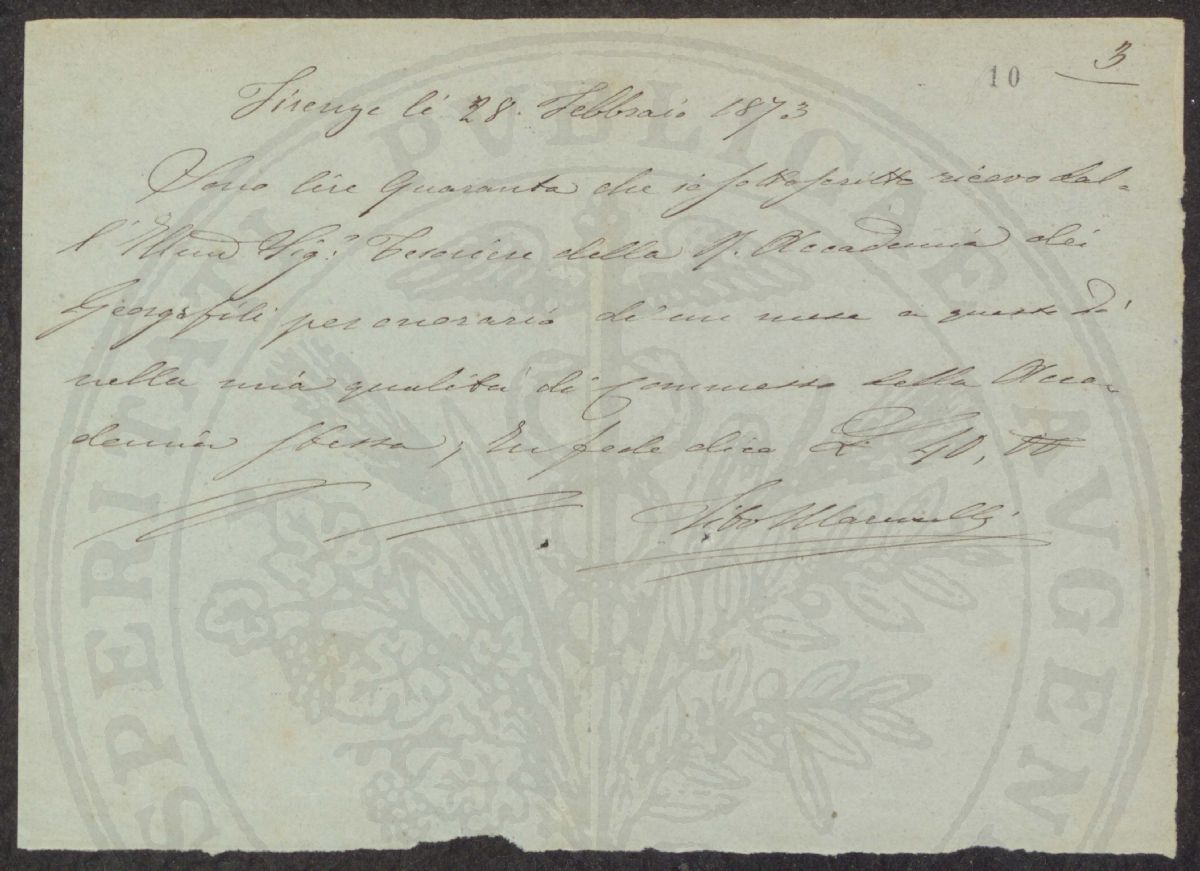 10
3
Firenze li 28. Febbraio 1873
Sono lire Quaranta che io sottoscritto ricevo dal=
l' Illmo Sig.r Tesoriere della R. Accademia dei
Georgofili per onorario di un mese a questo dì
nella mia qualità di Commesso della Acca-
demia stessa; In fede dico £ 40,00
PROSPERITATI PVBLICAE AVGENDAE